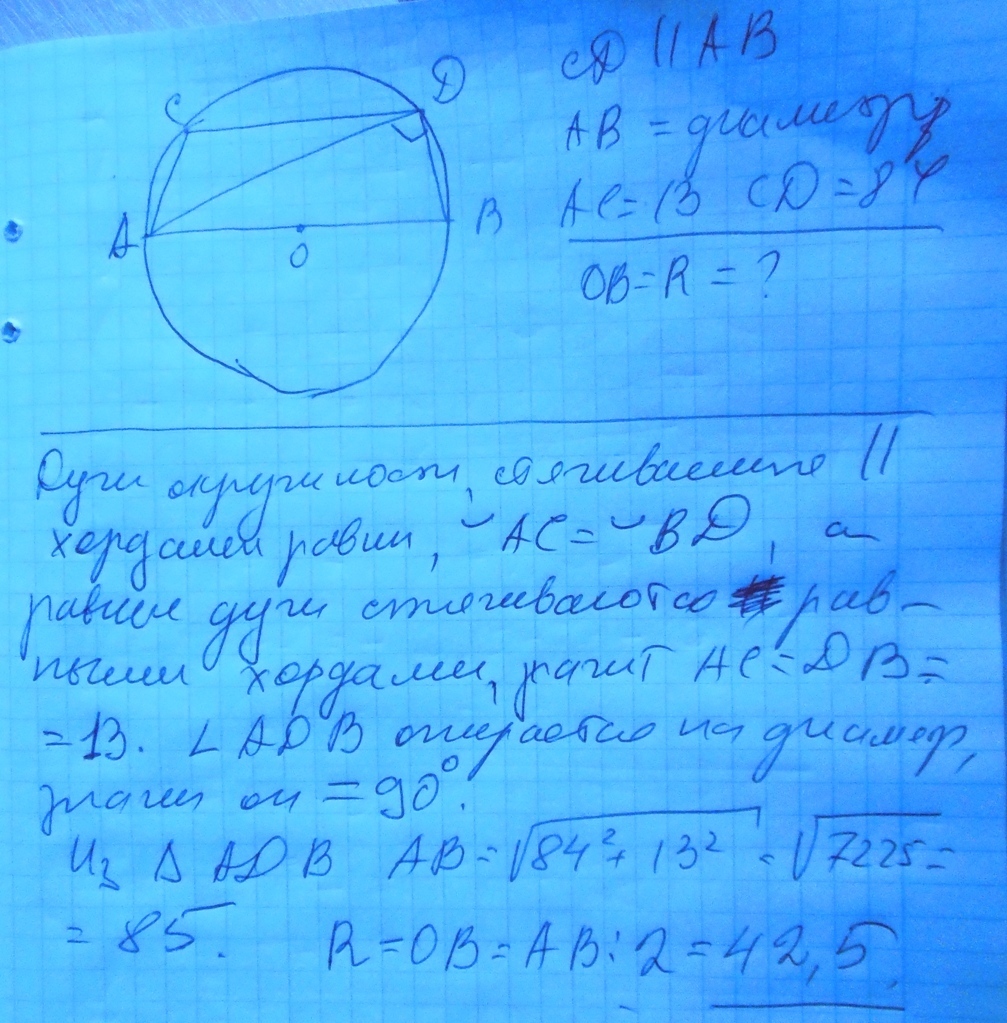 C
D
CD || AB
AB = диаметр
A
B
AC = 13 CD = 84
O
OB = R = ?
Дуги окружности, стягиваемые ||
хордами равны, ◡AC = ◡BD, а
равные дуги стягиваются рав-
ными хордами, значит AC = DB =
= 13. ∠ADB опирается на диаметр,
значит он = 90°.
Из Δ ADB AB = √84² + 13² = √7225 =
= 85. R = OB = AB : 2 = 42,5